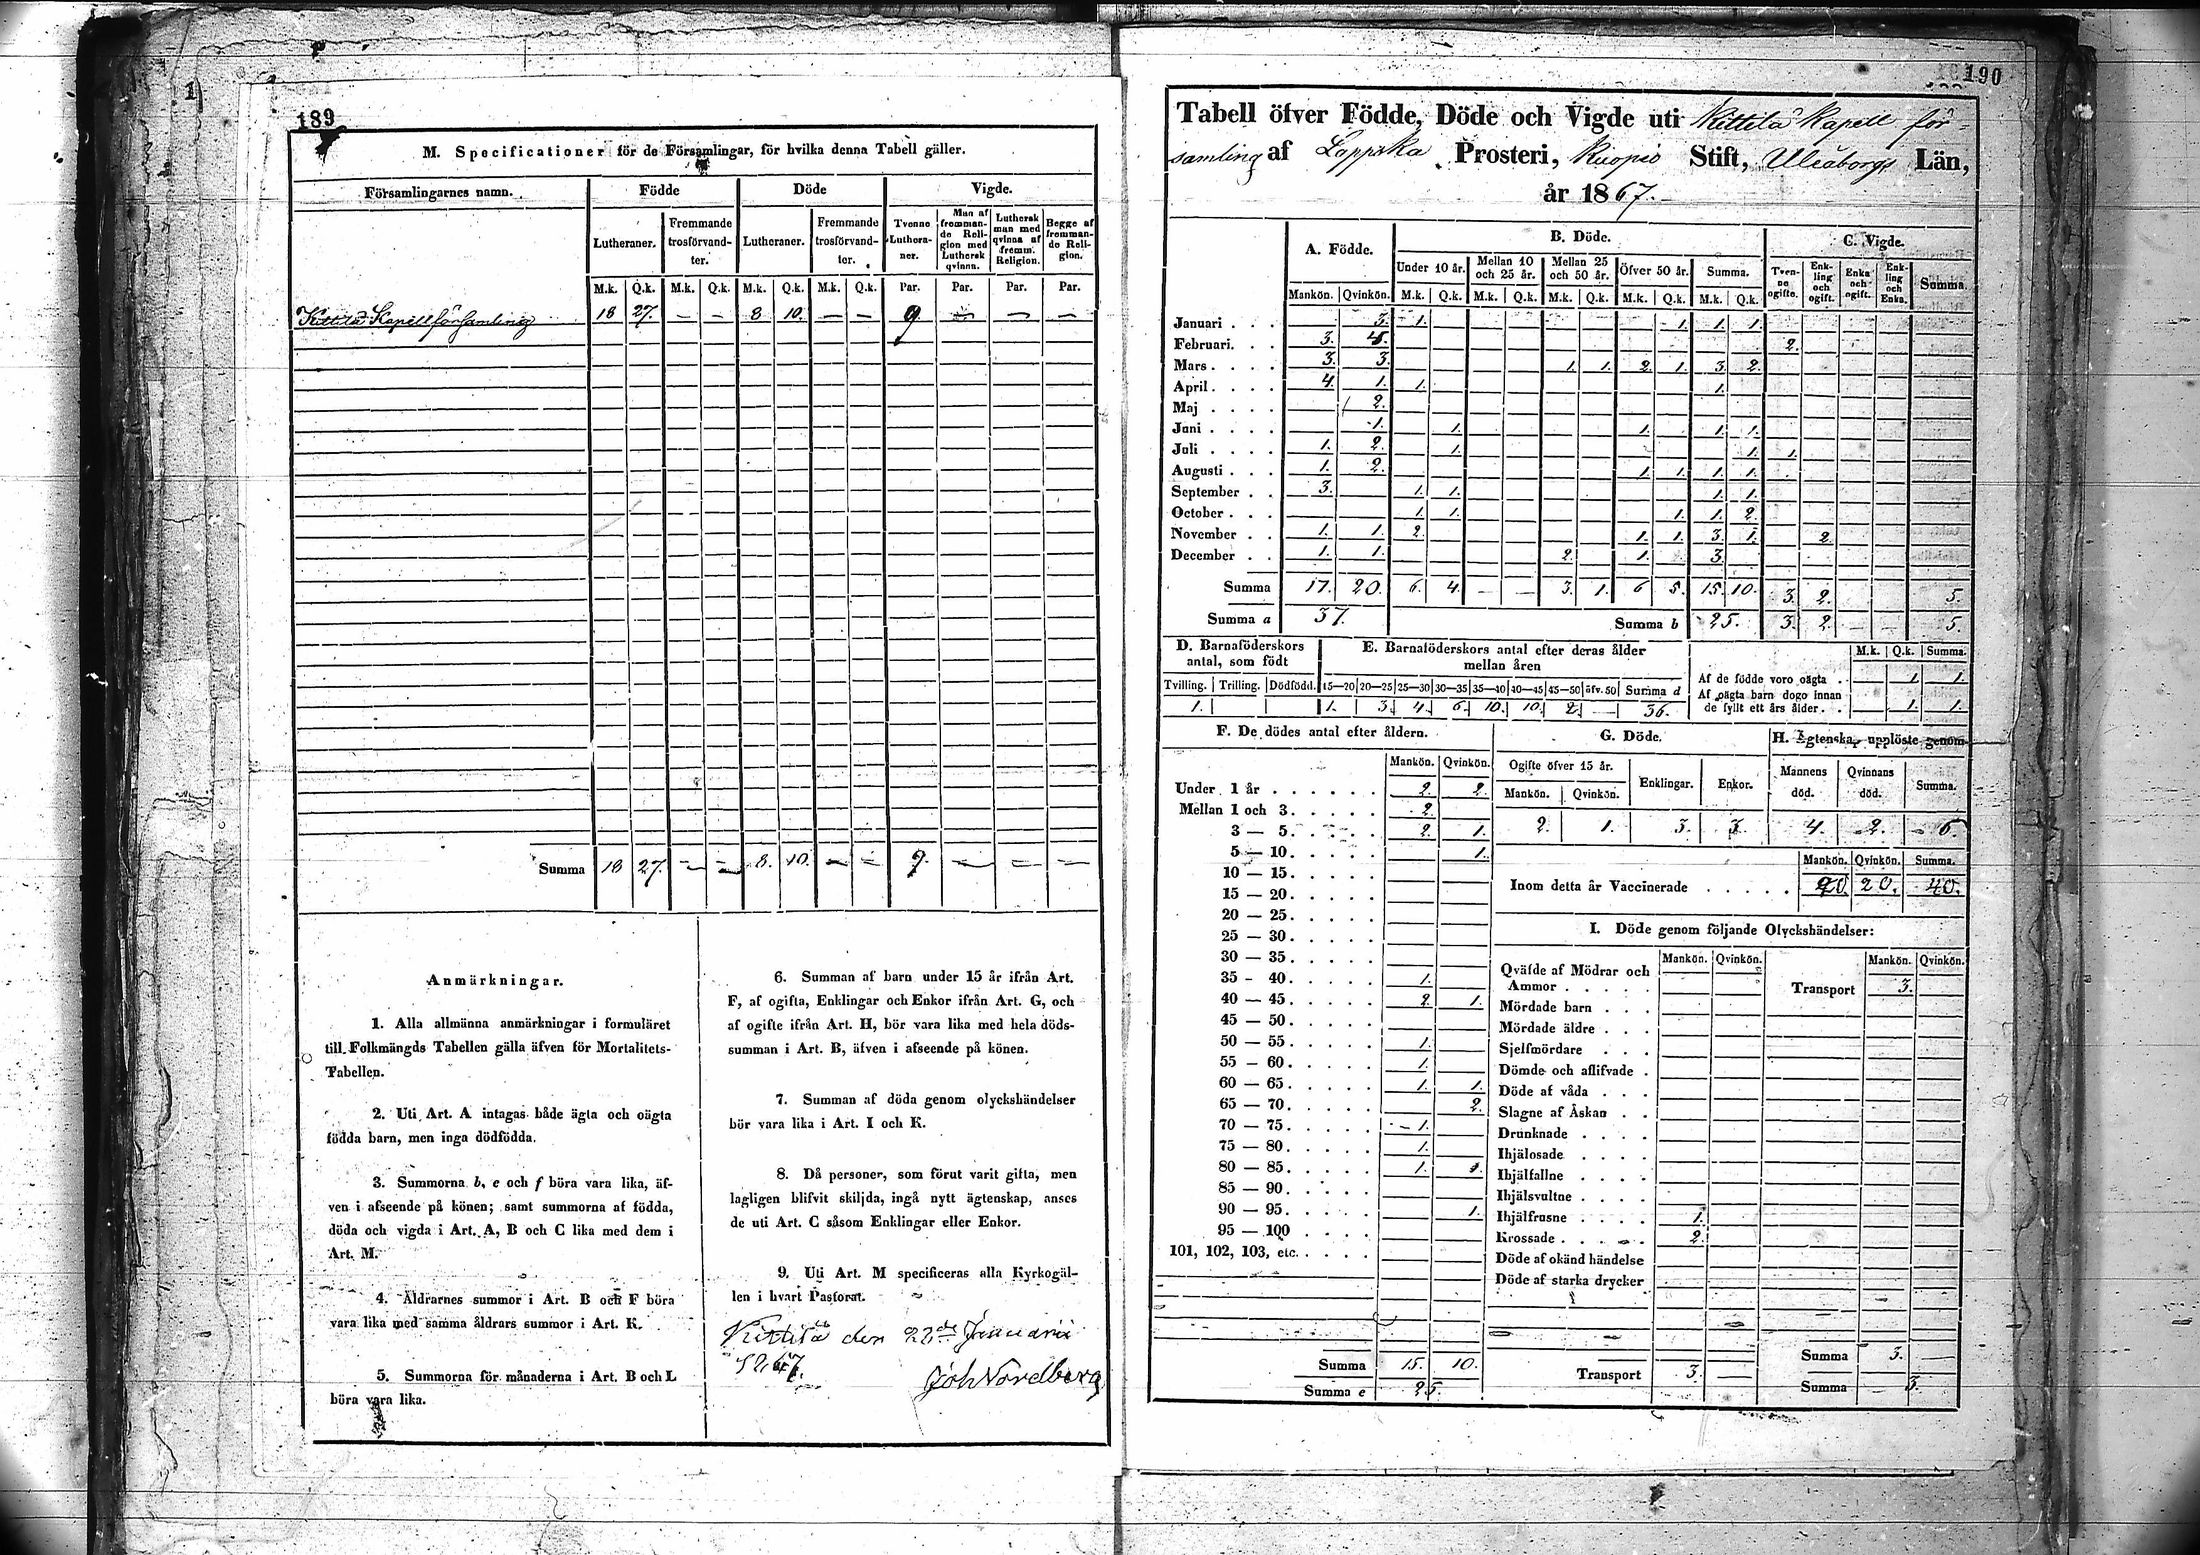 189
M. Specificationer för de Församlingar, för hvilka denna Tabell gäller.
Församlingarnes namn. Födde Döde Vigde.
Lutheraner. Fremmande trosförvandter. Lutheraner. Fremmande trosförvandter. Tvenne Lutheraner. Man af fremmande Religion med Luthersk qvinna. Luthersk man med qvinna af fremm. Religion. Begge af fremmande Religion.
M.k. Q.k. M.k. Q.k. M.k. Q.k. M.k. Q.k. Par. Par. Par. Par.
Kittilä Kapellförsamling 18 27. — — 8 10. — — 9 — — —
Summa 18 27. — — 8. 10. — — 9. — — —
Anmärkningar.
1. Alla allmänna anmärkningar i formuläret
till Folkmängds Tabellen gälla äfven för Mortalitets-
Tabellen.
2. Uti Art. A intagas både ägta och oägta
födda barn, men inga dödfödda.
3. Summorna b, e och f böra vara lika, äf-
ven i afseende på könen; samt summorna af födda,
döda och vigda i Art. A, B och C lika med dem i
Art. M.
4. Åldrarnes summor i Art. B och F böra
vara lika med samma åldrars summor i Art. K.
5. Summorna för månaderna i Art. B och L
böra vara lika.
6. Summan af barn under 15 år ifrån Art.
F, af ogifta, Enklingar och Enkor ifrån Art. G, och
af ogifte ifrån Art. H, bör vara lika med hela döds-
summan i Art. B, äfven i afseende på könen.
7. Summan af döda genom olyckshändelser
bör vara lika i Art. I och K.
8. Då personer, som förut varit gifta, men
lagligen blifvit skiljda, ingå nytt ägtenskap, anses
de uti Art. C såsom Enklingar eller Enkor.
9. Uti Art. M specificeras alla Kyrkogäl-
len i hvart Pastorat.
Kittilä den 22de Januarii
Joh Nordberg
190
Tabell öfver Födde, Döde och Vigde uti Kittilä Kapell för-
samling af Lappska Prosteri, Kuopio Stift, Uleåborgs Län,
år 1867.
A. Födde. B. Döde. C. Vigde.
Under 10 år. Mellan 10 och 25 år. Mellan 25 och 50 år. Öfver 50 år. Summa. Tvenne ogifte. Enkling och ogift. Enka och ogift. Enkling och Enka. Summa
Mankön. Qvinkön. M.k. Q.k. M.k. Q.k. M.k. Q.k. M.k. Q.k. M.k. Q.k.
Januari . . . 3. 1. 1. 1. 1.
Februari. . . 3. 4. 2.
Mars . . . . 3. 3. 1. 1. 2. 1. 3. 2.
April . . . . 4. 1. 1. 1.
Maj . . . . 2.
Juni . . . . 1. 1. 1. 1. 1.
Juli . . . . 1. 2. 1. 1. 1.
Augusti . . . 1. 2. 1. 1. 1. 1.
September . . 3. 1. 1. 1. 1.
October . . . 1. 1. 1. 1. 2.
November . . 1. 1. 2. 1. 1. 3. 1. 2.
December . . 1. 1. 2. 1. 3.
Summa 17. 20. 6. 4. — — 3. 1. 6 5. 15. 10. 3. 2. 5.
Summa a 37. Summa b 25. 3. 2. — — 5.
D. Barnaföderskors antal, som födt
Tvilling. Trilling. Dödfödd.
1.
E. Barnaföderskors antal efter deras ålder mellan åren
15—20 20—25 25—30 30—35 35—40 40—45 45—50 öfv. 50 Summa d
1. 3. 4. 6. 10. 10. 2. — 36.
M.k. Q.k. Summa.
Af de födde voro oägta . 1. 1.
Af oägta barn dogo innan
de fyllt ett års ålder . . 1. 1.
F. De dödes antal efter åldern.
Mankön. Qvinkön.
Under 1 år . . . . . . 2. 2.
Mellan 1 och 3. . . . . 2.
3 — 5. . . . . 2. 1.
5 — 10. . . . . 1.
10 — 15. . . . .
15 — 20. . . . .
20 — 25. . . . .
25 — 30. . . . .
30 — 35. . . . .
35 - 40. . . . . 1.
40 — 45. . . . . 2. 1.
45 — 50. . . . .
50 — 55. . . . . 1.
55 — 60. . . . . 1.
60 — 65. . . . . 1. 1.
65 — 70. . . . . 2.
70 — 75. . . . . 1.
75 — 80. . . . . 1.
80 — 85. . . . . 1. 1.
85 — 90. . . . .
90 — 95. . . . . 1.
95 — 100 . . . .
101, 102, 103, etc. . . . .
Summa 15. 10.
Summa e 25.
G. Döde.
Ogifte öfver 15 år. Enklingar. Enkor.
Mankön. Qvinkön.
2. 1. 3. 3.
H. Ägtenskap upplöste genom
Mannens död. Qvinnans död. Summa.
4. 2. 6
Mankön. Qvinkön. Summa.
Inom detta år Vaccinerade . . . . . 20. 20. 40.
I. Döde genom följande Olyckshändelser:
Mankön. Qvinkön. Mankön. Qvinkön.
Qväfde af Mödrar och
Ammor . . . . . Transport 3.
Mördade barn . . .
Mördade äldre . . .
Sjelfmördare . . .
Dömde och aflifvade .
Döde af våda . . .
Slagne af Åskan . .
Drunknade . . . .
Ihjälosade . . . .
Ihjälfallne . . . .
Ihjälsvultne . . . .
Ihjälfrusne . . . . 1.
Krossade . . . . 2.
Döde af okänd händelse
Döde af starka drycker
Summa 3. —
Transport 3. — Summa 3.